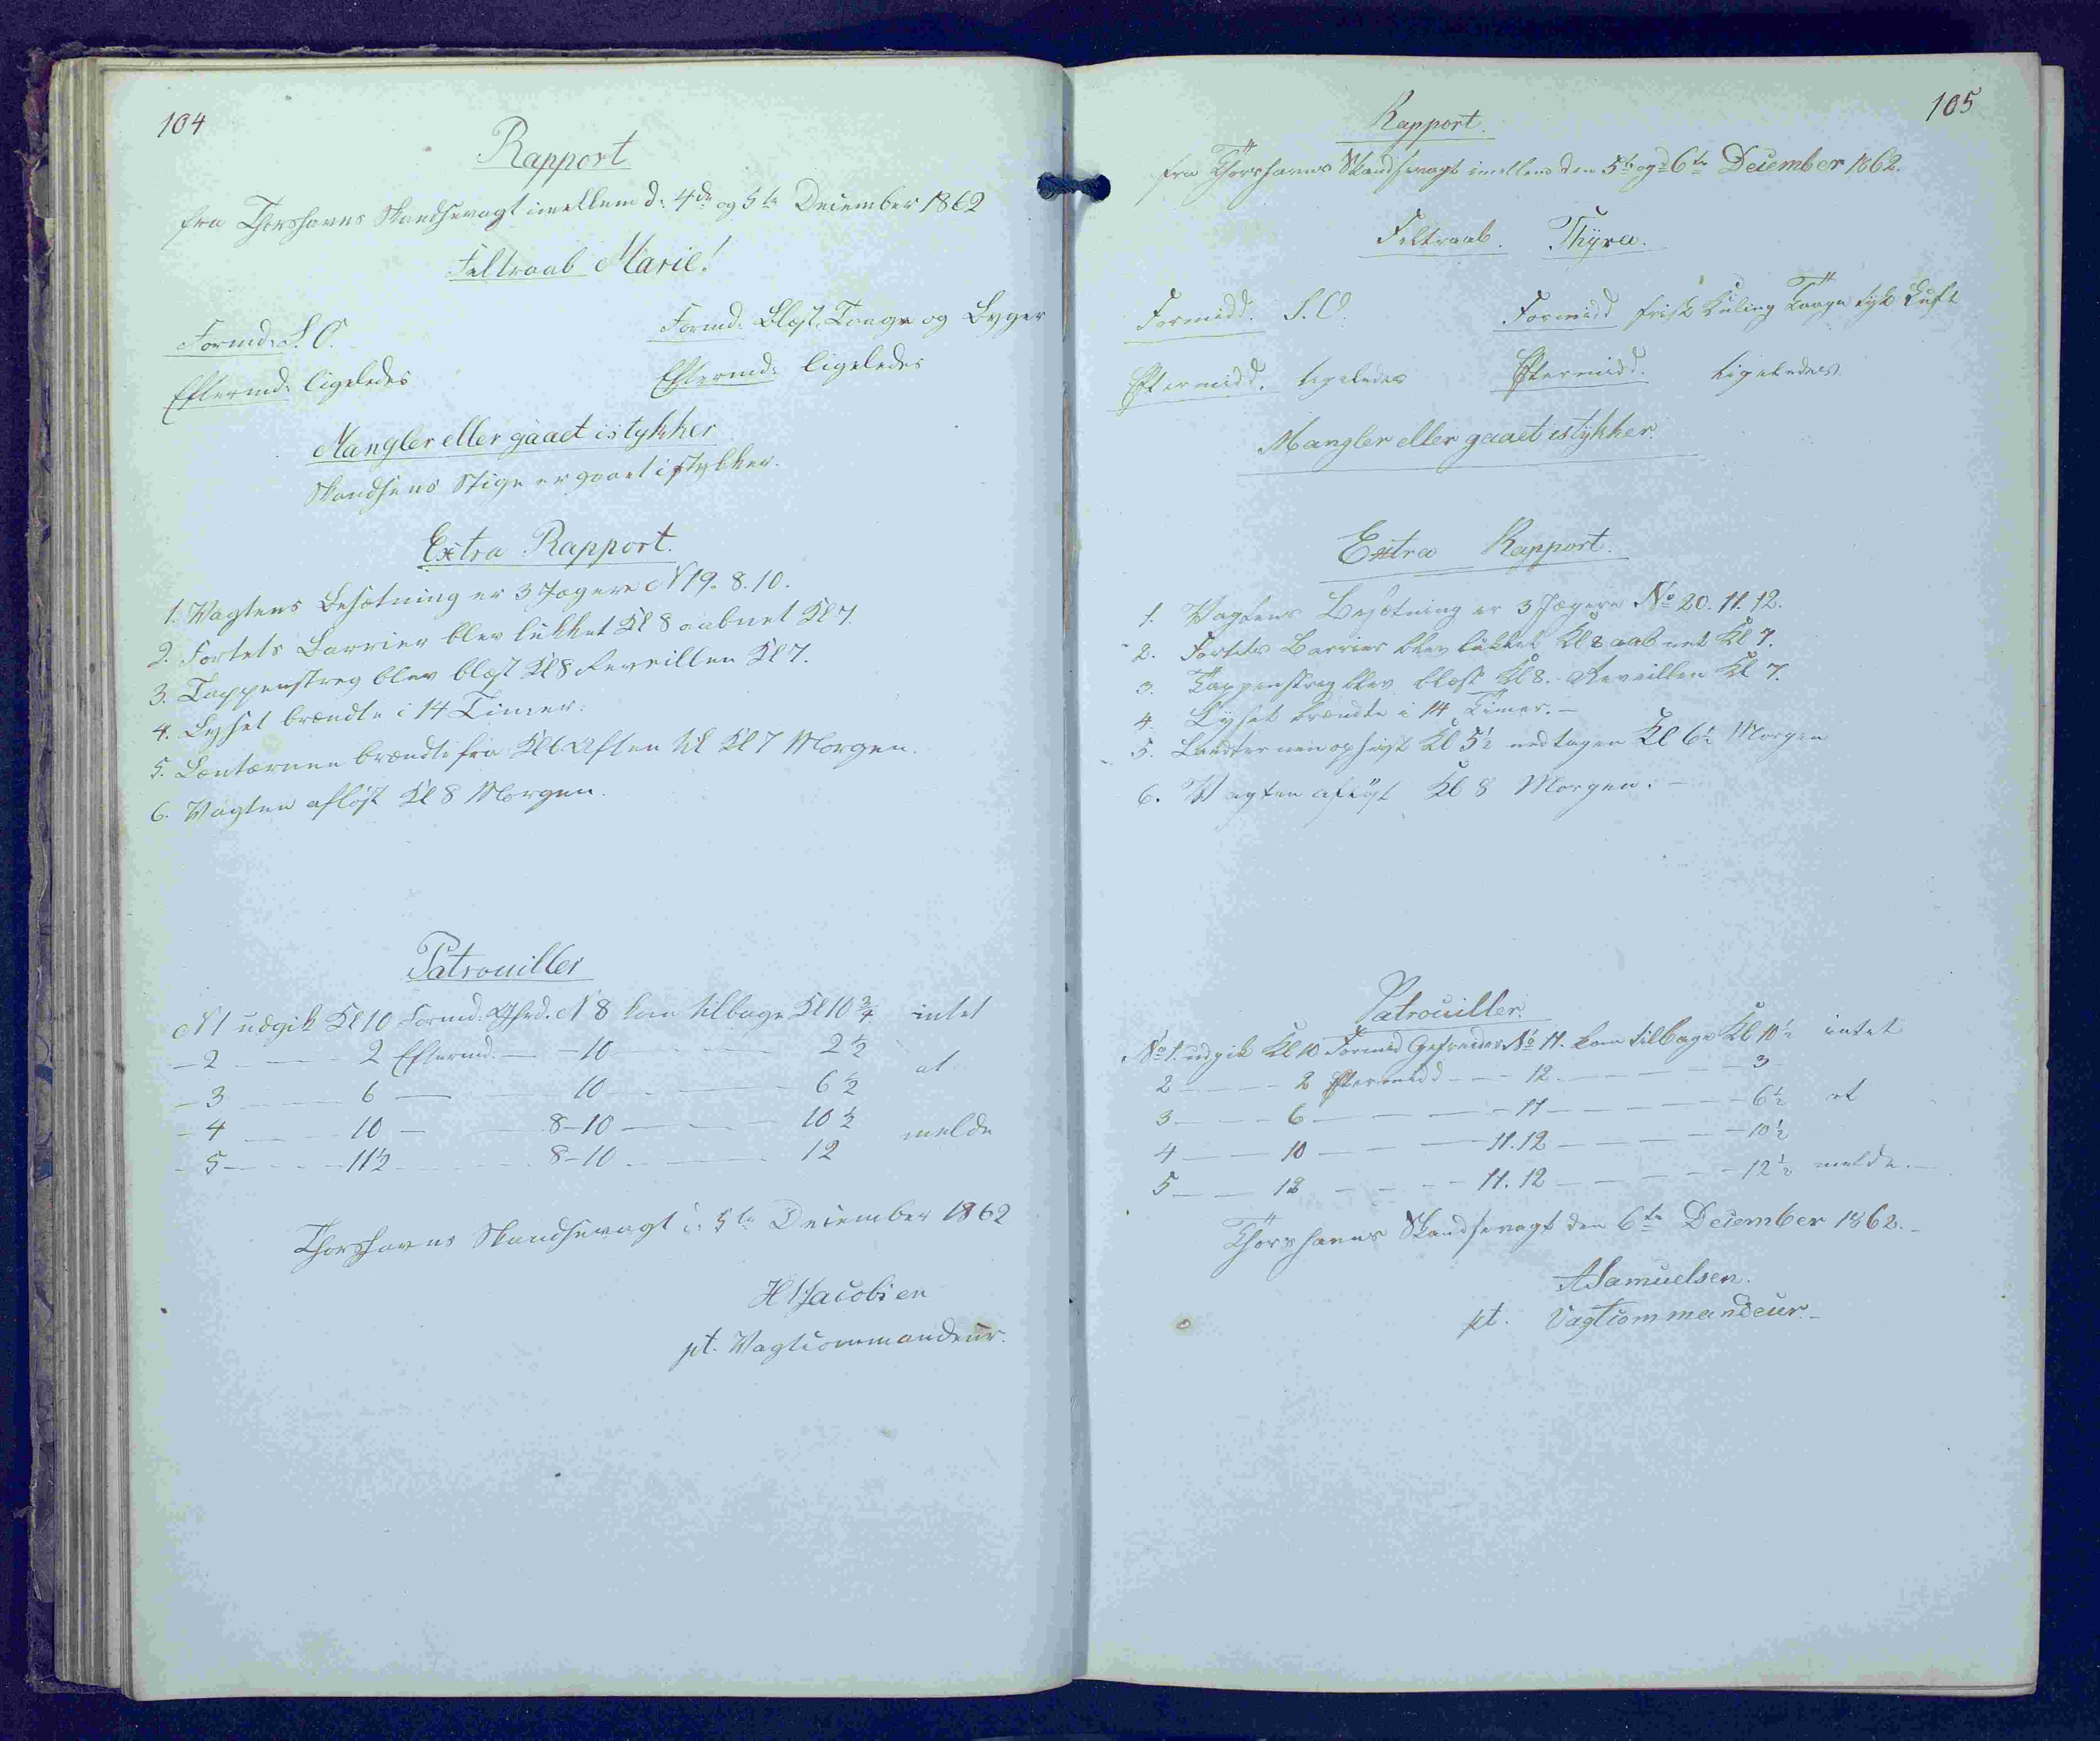 104
Rapport
fra Thorshavns Skandsevagt imellem d: 4de og 5te December 1862
Feltraab Marie!
Formd. S. O. Formd: Blæst, Taage og Byger
Eftermd: ligeledes Eftermd: ligeledes
Mangler eller gaaet istykker
Skandsens Stige er gaaet i stykker.
Extra Rapport.
1. Vagtens Besætning er 3 Jægere N 19. 8. 10.
2. Fortets Barrier blev lukket Kl 8 aabnet Kl 7.
3. Tappenstreg blev blæst Kl 8 Reveillen Kl 7.
4. Lyset brændte i 14 Timer.
5. Lantærnen brændte fra Kl 6 Aften til Kl 7 Morgen.
6. Vagten afløst Kl 8 Morgen.
Patrouiller
N 1 udgik Kl 10 Formd: Gfrd. N 8 kom tilbage Kl 10 3/4 intet
- 2 — 2 Eftermd. — - 10 — 2 1/2
- 3 — 6 — 10 — 6 1/2 at
- 4 — 10 — 8-10 — 10 1/2
- 5 — 11 1/2 — 8-10 — 12 melde
Thorshavns Skandsevagt d: 5te December 1862
H Jacobsen
pt. Vagtcommandeur.
105
Rapport.
fra Thorshavns Skandsevagt imellem den 5te og 6te December 1862.
Feltraab. Thyra.
Formidd. S. O. Formidd frisk Kuling Taage tyk Luft
Eftermidd. ligeledes Eftermidd. ligeledes
Mangler eller gaaet istykker.
Extra Rapport.
1. Vagtens Besætning er 3 Jægere No 20. 11. 12.
2. Fortets Barrier blev lukket Kl 8 aabnet Kl 7.
3. Tappenstreg blev blæst Kl 8. Reveillen Kl 7.
4. Lyset brændte i 14 Timer. —
5. Lanternen ophejst Kl 5 1/2 nedtagen Kl 6 1/2 Morgen
6. Vagten afløst Kl 8 Morgen. —
Patrouiller.
No 1. udgik Kl 10 Formid Gefreider No 11. kom tilbage Kl 10 1/2 intet
2 — 2 Eftermidd — 12 — 3
3 — 6 — 11 — 6 1/2 at
4 — 10 — 11. 12 — 10 1/2
5 — 12 — 11. 12 — 12 1/2 melde. —
Thorshavns Skandsevagt den 6te December 1862. —
A Samuelsen.
pt. Vagtcommandeur. —